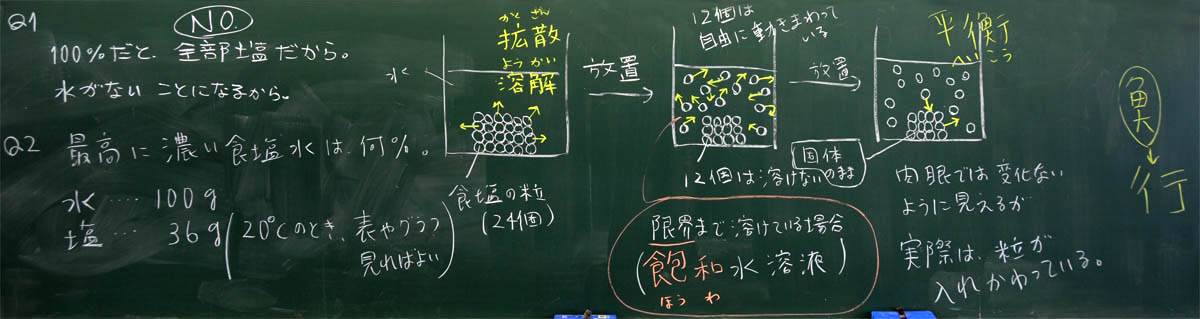 Q1 NO.
100%だと、全部塩だから。
水がないことになるから。
Q2 最高に濃い食塩水は、何%。
水 … 100g
塩 … 36g (20℃のとき、表やグラフ
見ればよい)
かくさん
拡散
ようかい
溶解
水
食塩の粒
(24個)
放置
12個は
自由に動きまわって
いる
12個は溶けない
固体
のまま
限界まで溶けている場合
(飽和水溶液)
ほうわ
放置
平衡
へいこう
肉眼では変化ない
ように見えるが
実際は、粒が
入れかわっている。
魚
行